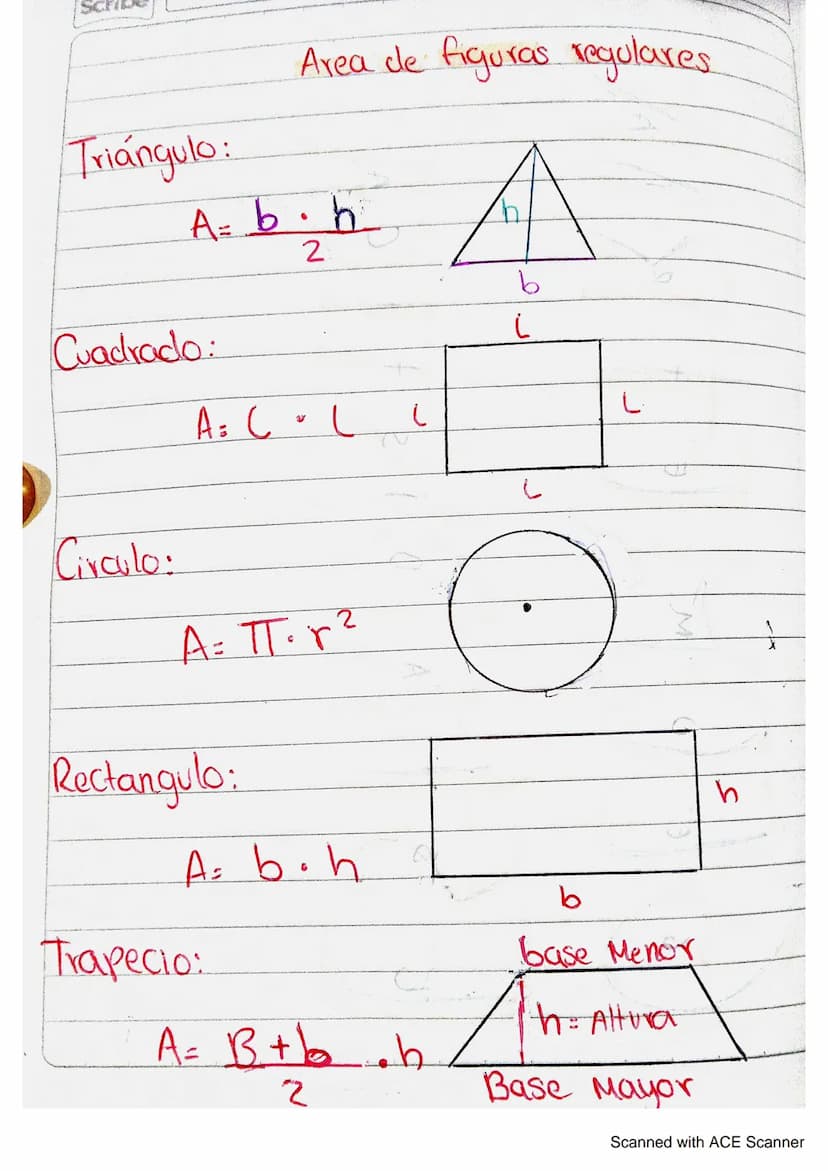 Scribe
Area de figuras regulares
Triángulo:
A= b · h
2
h
b
Cuadrado:
L
A= L · L
L
L
L
Circulo:
A= π · r²
Rectangulo:
h
A= b · h
b
Trapecio:
base Menor
h= Altura
A= B + b · h
2
Base Mayor
Scanned with ACE Scanner